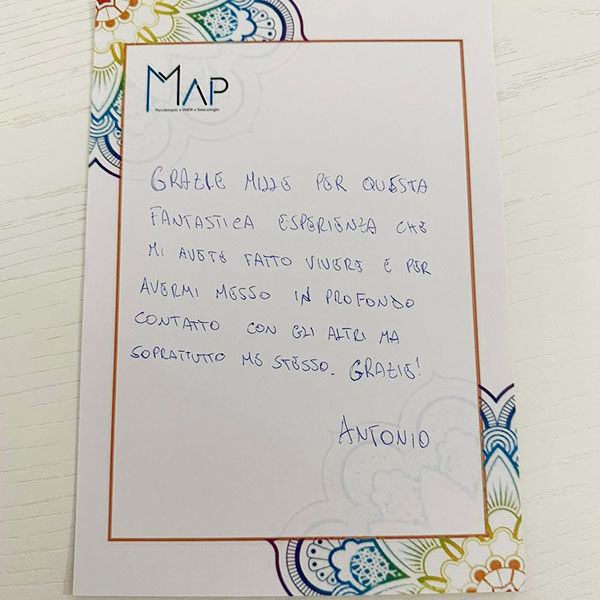 MAP
Psicoterapia • EMDR • Sessuologia
GRAZIE MILLE PER QUESTA
FANTASTICA ESPERIENZA CHE
MI AVETE FATTO VIVERE E PER
AVERMI MESSO IN PROFONDO
CONTATTO CON GLI ALTRI MA
SOPRATTUTTO ME STESSO. GRAZIE!
ANTONIO